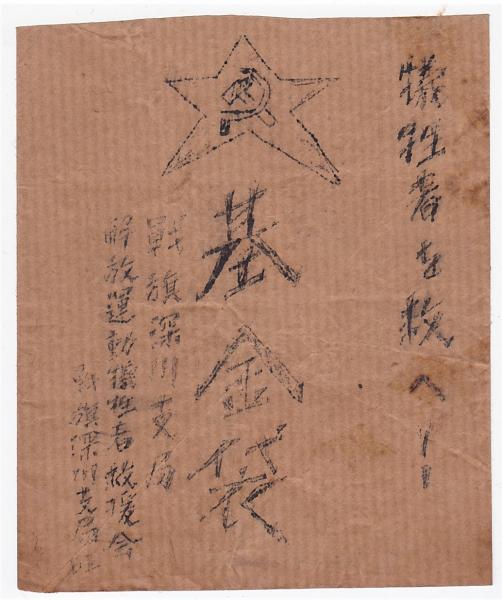 犠牲者を救へ!!
基金袋
戦旗深川支局
解放運動犠牲者救援会
戦旗深川支局班